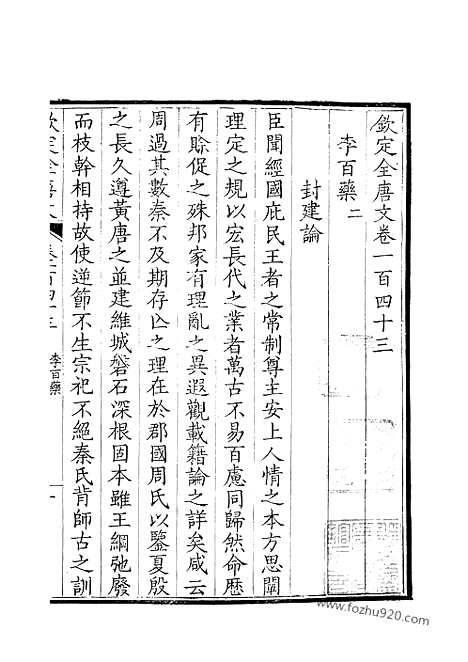 欽定全唐文卷一百四十三
李百藥二
封建論
臣聞經國庇民王者之常制尊主安上人情之本方思闡
理定之規以宏長代之業者萬古不易百慮同歸然命厯
有賒促之殊邦家有理亂之異遐觀載籍論之詳矣咸云
周過其數秦不及期存亾之理在於郡國周氏以鑒夏殷
之長久遵黃唐之並建維城磐石深根固本雖王綱弛廢
而枝幹相持故使逆節不生宗祀不絕秦氏背師古之訓
欽定全唐文
卷一百四十三 李百藥
一
www.fozhu920.com